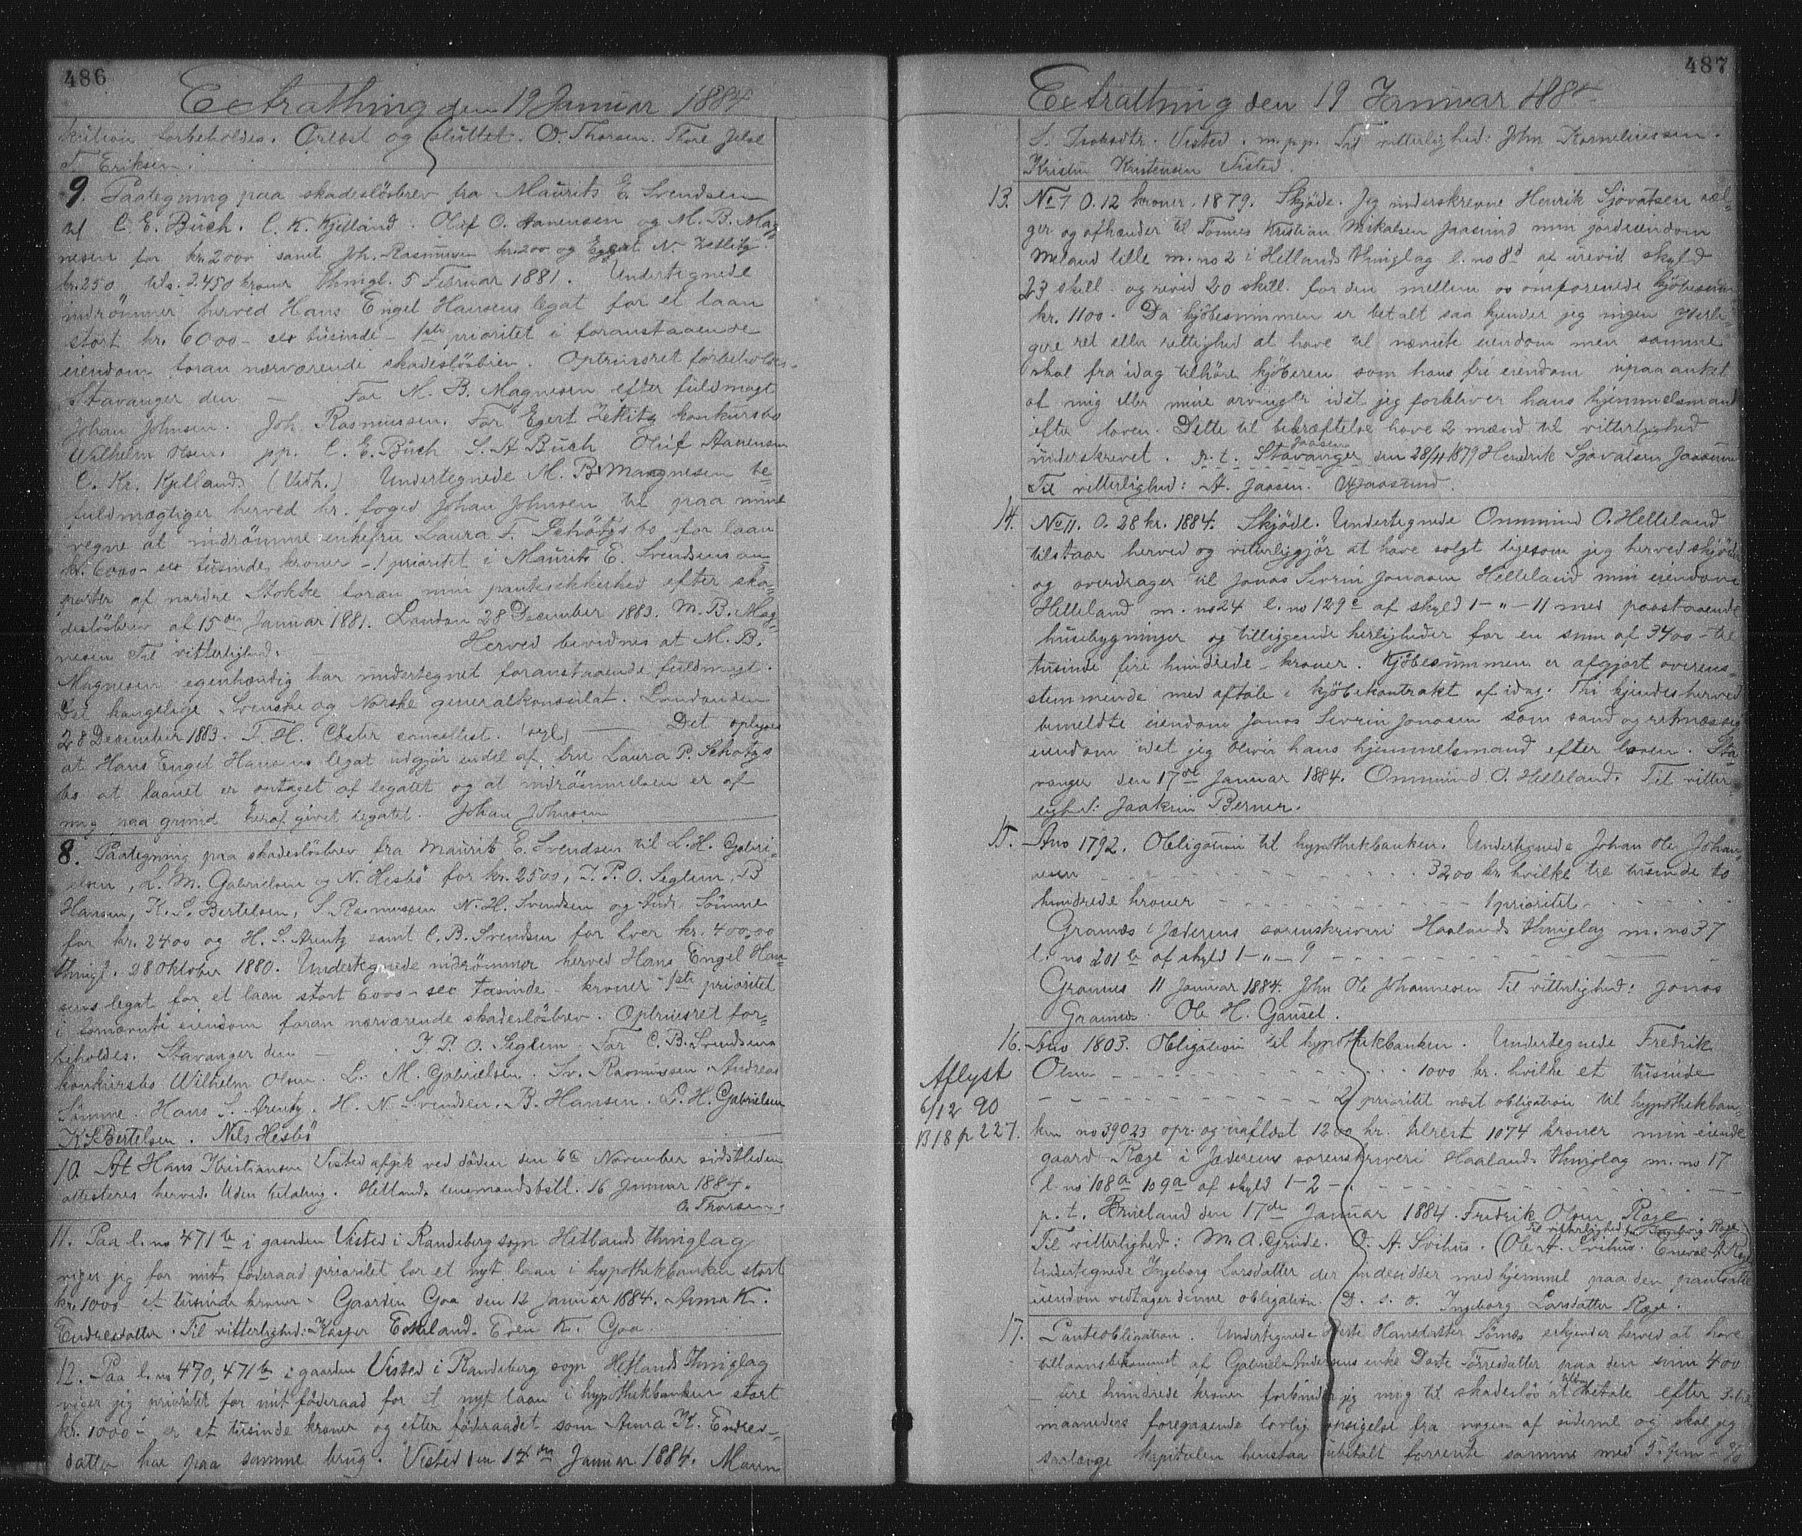 486
Extrathing den 19 Januar 1884
forbeholdes. Oplæst og sluttet. O. Thorsen. Thore
T. Eriksen.
9. Paategning paa skadeslösbrev fra Maurits E. Svendsen
til C. E. Büch. C. K. Kjelland. Oluf O. Aanensen og M. B. Mag-
nesen for kr. 2000 samt Joh. Rasmusen kr. 200 og Egert N Zetlitz
kr. 250 tils. 2450 kroner thingl. 5 Februar 1881. Undertegnede
indrömmer herved Hans Engel Hansens legat for et laan
stört kr. 6000 - sex tusinde - 1ste prioritet i foranstaaende
eiendom foran nærværende skadeslösbrev. Optrinsret forbeholdes.
Stavanger den — For M. B. Magnesen efter fuldmagt
Johan Johnsen. Joh. Rasmussen. For Egert Zetlitz konkursbo
Wilhelm Olsen. pp. C. E. Büch S. A. Büch Oluf Aanensen
C. Kr. Kjelland (Vidh.) Undertegnede M. B. Magnesen be-
fuldmægtiger herved hr. foged Johan Johnsen til paa mine
vegne at indrömme enkefru Laura F. Schötzs bo for laan
kr. 6000 - sex tusinde kroner - 1 prioritet i Maurits E. Svendsens an-
parter af nordre Stokke foran min pantesikkerhed efter ska-
deslösbrev af 15de Januar 1881. London 28 December 1883. M. B. Mag-
nesen Til vitterlighed. Herved bevidnes at M. B.
Magnesen egenhændig har undertegnet foranstaaende fuldmagt.
Det kongelige Svenske og Norske generalkonsulat. London den
28 December 1883. T. H. cancellist. (segl) — Det oplyses
at Hans Engel Hansens legat udgjör endel af fru Laura P. Schötzs
bo at laanet er optaget af legatet og at indrömmelsen er af
mig paa grund heraf givet legatet. Johan Johnsen
8. Paategning paa skadeslösbrev fra Maurits E. Svendsen til L. H. Gabri-
elsen, L. M. Gabrielsen og N. Hesbö for kr. 2500, T. P. O. Siglem, B
Hansen, K. S. Bertelsen, S Rasmussen N. H. Svendsen og Andr. Sömme
for kr. 2400 og H. S. Arentz samt C. B. Svendsen for hver kr. 400,00
thingl. 28 Oktober 1880. Undertegnede indrömmer herved Hans Engel Han-
sens legat for et laan stort 6000 - sex tusinde - kroner 1ste prioritet
i fornævnte eiendom foran nærværende skadeslösbrev. Optrinsret for-
beholdes. Stavanger den — T. P. O. Siglem. For C. B. Svendsens
konkursbo Wilhelm Olsen. L. M. Gabrielsen. Sv. Rasmussen Andreas
Sömme. Hans S. Arentz. H. N. Svendsen. B. Hansen. L. H. Gabrielsen
K S Bertelsen. Nils Hesbö
10. At Hans Kristiansen Visted afgik ved döden den 6te November sidstleden
attesteres herved. Uden betaling. Hetlands lensmandsbest. 16 Januar 1884.
O. Thorsen.
11. Paa l. no 471b i gaarden Visted i Randeberg sogn Hetlands thinglag
viger jeg for mit föderaad prioritet for et nyt laan i hypothekbanken stort
kr. 1000 et tusinde kroner. Gaarden Goa den 12 Januar 1884. Anna K.
Endresdatter. Til vitterlighed: Kasper Eskeland. Even K. Goa.
12. Paa l. no 470, 471b i gaarden Visted i Randeberg sogn Hetlands thinglag
viger jeg prioritet for mit föderaad for et nyt laan i hypothekbanken stort
kr. 1000 - er et tusinde kroner og efter föderaadet som Anna K. Endres-
datter har paa samme brug. Visted den 12te Januar 1884. Maren
487
Extrathing den 19 Januar 1884.
S. Visted. m.p.p. Til vitterlighed: John Korneliussen.
Kristen Kristensen Visted.
13. No 7 O. 12 kroner. 1879. Skjöde. Jeg underskrevne Henrik Sjövatsen sæl-
ger og afhænder til Tönnes Kristian Mikalsen Jaasund min jordeiendom
Meland lille m. no 2 i Hetlands thinglag l. no 8d af urevid skyld
23 skill. og revid 20 skill. for den mellem os omforenede kjöbesum
kr. 1100. Da kjöbesummen er betalt saa kjender jeg ingen yderli-
gere ret eller rettighed at have til nævnte eiendom men samme
skal fra idag tilhöre kjöberen som hans fri eiendom upaaanket
af mig eller mine arvinger idet jeg forbliver hans hjemmelsmand
efter loven. Dette til bekræftelse have 2 mænd til vitterlighed
underskrevet. p. t. Stavanger Jaasen den 28/11 1879 Hendrik Sjövatsen Jaasund
Til vitterlighed: A. Jaasen. O Jaasund.
14. No 11. O. 28 kr. 1884. Skjöde. Undertegnede Ommund O. Helleland
tilstaar herved og vitterliggjör at have solgt ligesom jeg herved skjöder
og overdrager til Jonas Sivrin Jonasen Helleland min eiendom
Helleland m. no 24 l. no 129c af skyld 1 - „ - 11 med paastaaende
husebygninger og tilliggende herligheder for en sum af 3400 - tre
tusinde fire hundrede - kroner. Kjöbesummen er afgjort overens-
stemmende med aftale i kjöbekontrakt af idag. Thi kjendes herved
bemeldte eiendom Jonas Sivrin Jonasen som sand og retmæssig
eiendom idet jeg bliver hans hjemmelsmand efter loven. Sta-
vanger den 17de Januar 1884. Ommund O. Helleland. Til vitter-
lighed: Jaakim Berner.
15. Ano 1792. Obligation til hypothekbanken. Undertegnede Johan Ole Johan-
nesen - - - 3200 kr. hvilke tre tusinde to
hundrede kroner - - - 1 prioritet - - -
Granæs i Jæderens sorenskriveri Haalands thinglag m. no 37
l. no 201b af skyld 1 - „ - 9 - - -
Grannes 11 Januar 1884. John Ole Johannesen Til vitterlighed: Jonas
Grannes. Ole H. Gausel.
16. Ano 1803. Obligation til hypothekbanken. Undertegnede Fredrik
Olsen - - - 1000 kr. hvilke et tusinde
- - - 2 prioritet næst obligation til hypothekban-
ken no 39023 opr. og uaflæst 1200 kr. tilrest 1074 kroner min eiende
gaard Ræge i Jæderens sorenskriveri Haalands thinglag m. no 17
l. no 108a 109a af skyld 1 - 2 - - -
p. t. den 17de Januar 1884. Fredrik Olsen Ræge.
Til vitterlighed: M. A. Grude. O. A. Svihus. (Til vitterlighed for Ingeborg Ræge Ole A. Svihus. Eneval A. Ræge)
Undertegnede Ingeborg Larsdatter der indesidder med hjemmel paa den pantsatte
eiendom vedtager denne obligation. D. s. o. Ingeborg Larsdatter Ræge.
Aflyst
6/12 90
B 18 p 227.
17. Panteobligation. Undertegnede Hansdatter Sömes erkjender herved at have
tillaansbekommet af Gabriel Andersens enke Dorte Torresdatter paa den sum 400
fire hundrede kroner forbinder jeg mig til skadeslös at tilbagebetale efter 3 tre
maaneders foregaaende lovlig opsigelse fra nogen af siderne og skal jeg
saalænge kapitalen henstaar ubetalt forrente samme med 5 - fem - %